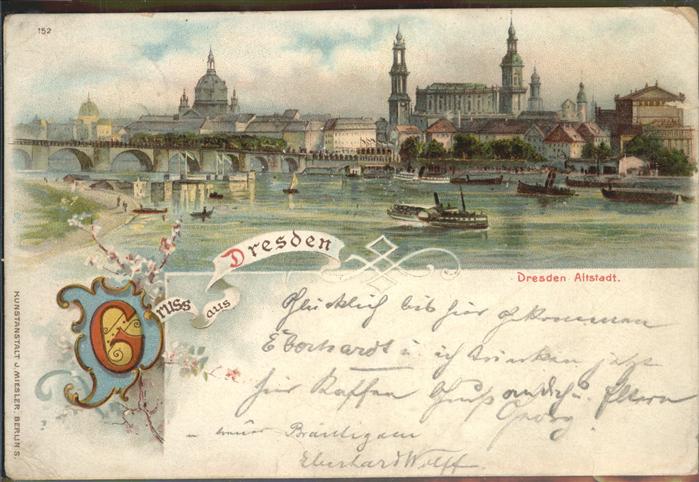 152
Gruss aus Dresden
Dresden Altstadt.
KUNSTANSTALT J. MIESLER, BERLIN S.
Glücklich bis hier gekommen
Eberhardt u. ich trinken jetzt
hier Kaffee Gruß an dich u. Eltern
Georg
Bräutigam
Eberhard Wolff.